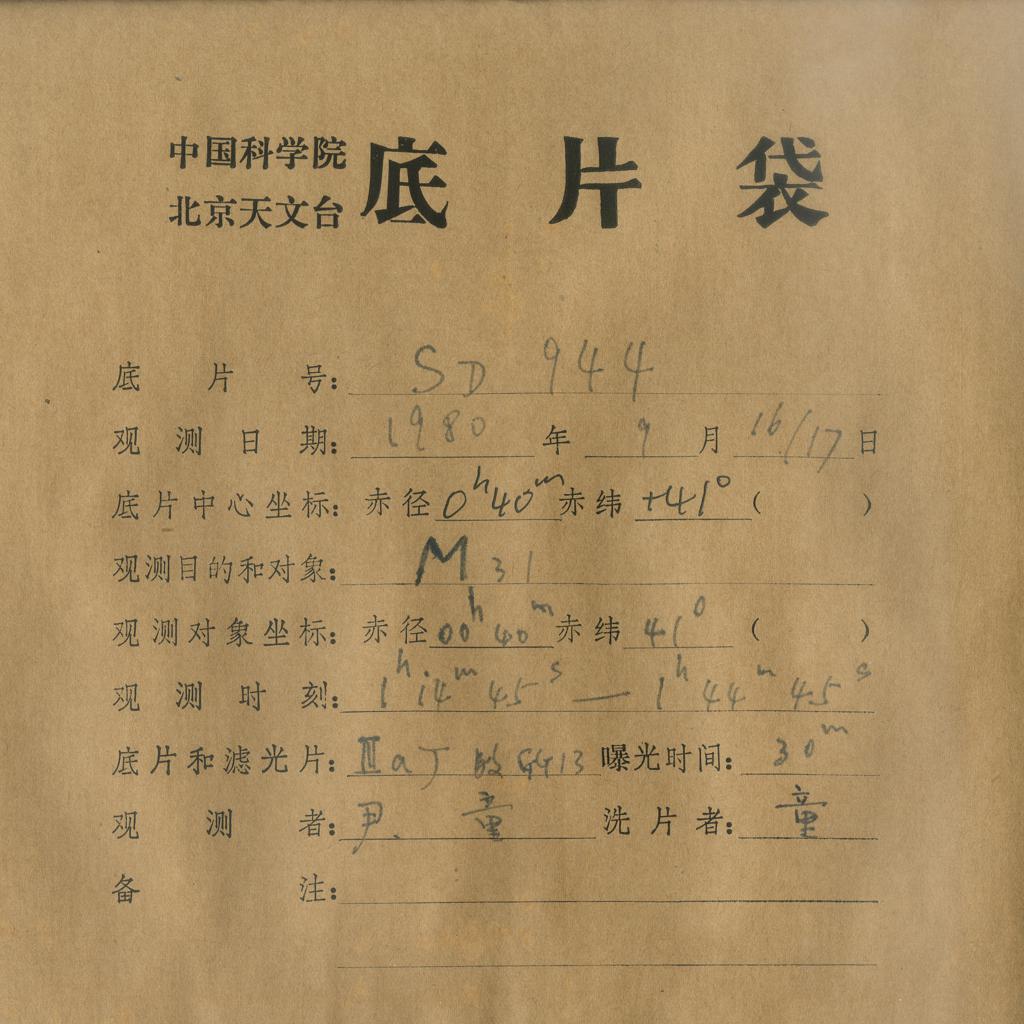 中国科学院
北京天文台
底片袋
底片号: SD 944
观测日期: 1980年 9月 16/17日
底片中心坐标: 赤径 0h40m 赤纬 +41° ( )
观测目的和对象: M31
观测对象坐标: 赤径 00h40m 赤纬 41° ( )
观测时刻: 1h14m45s — 1h44m45s
底片和滤光片: IIaJ GG13 曝光时间: 30m
观测者: 尹. 童 洗片者: 童
备注: